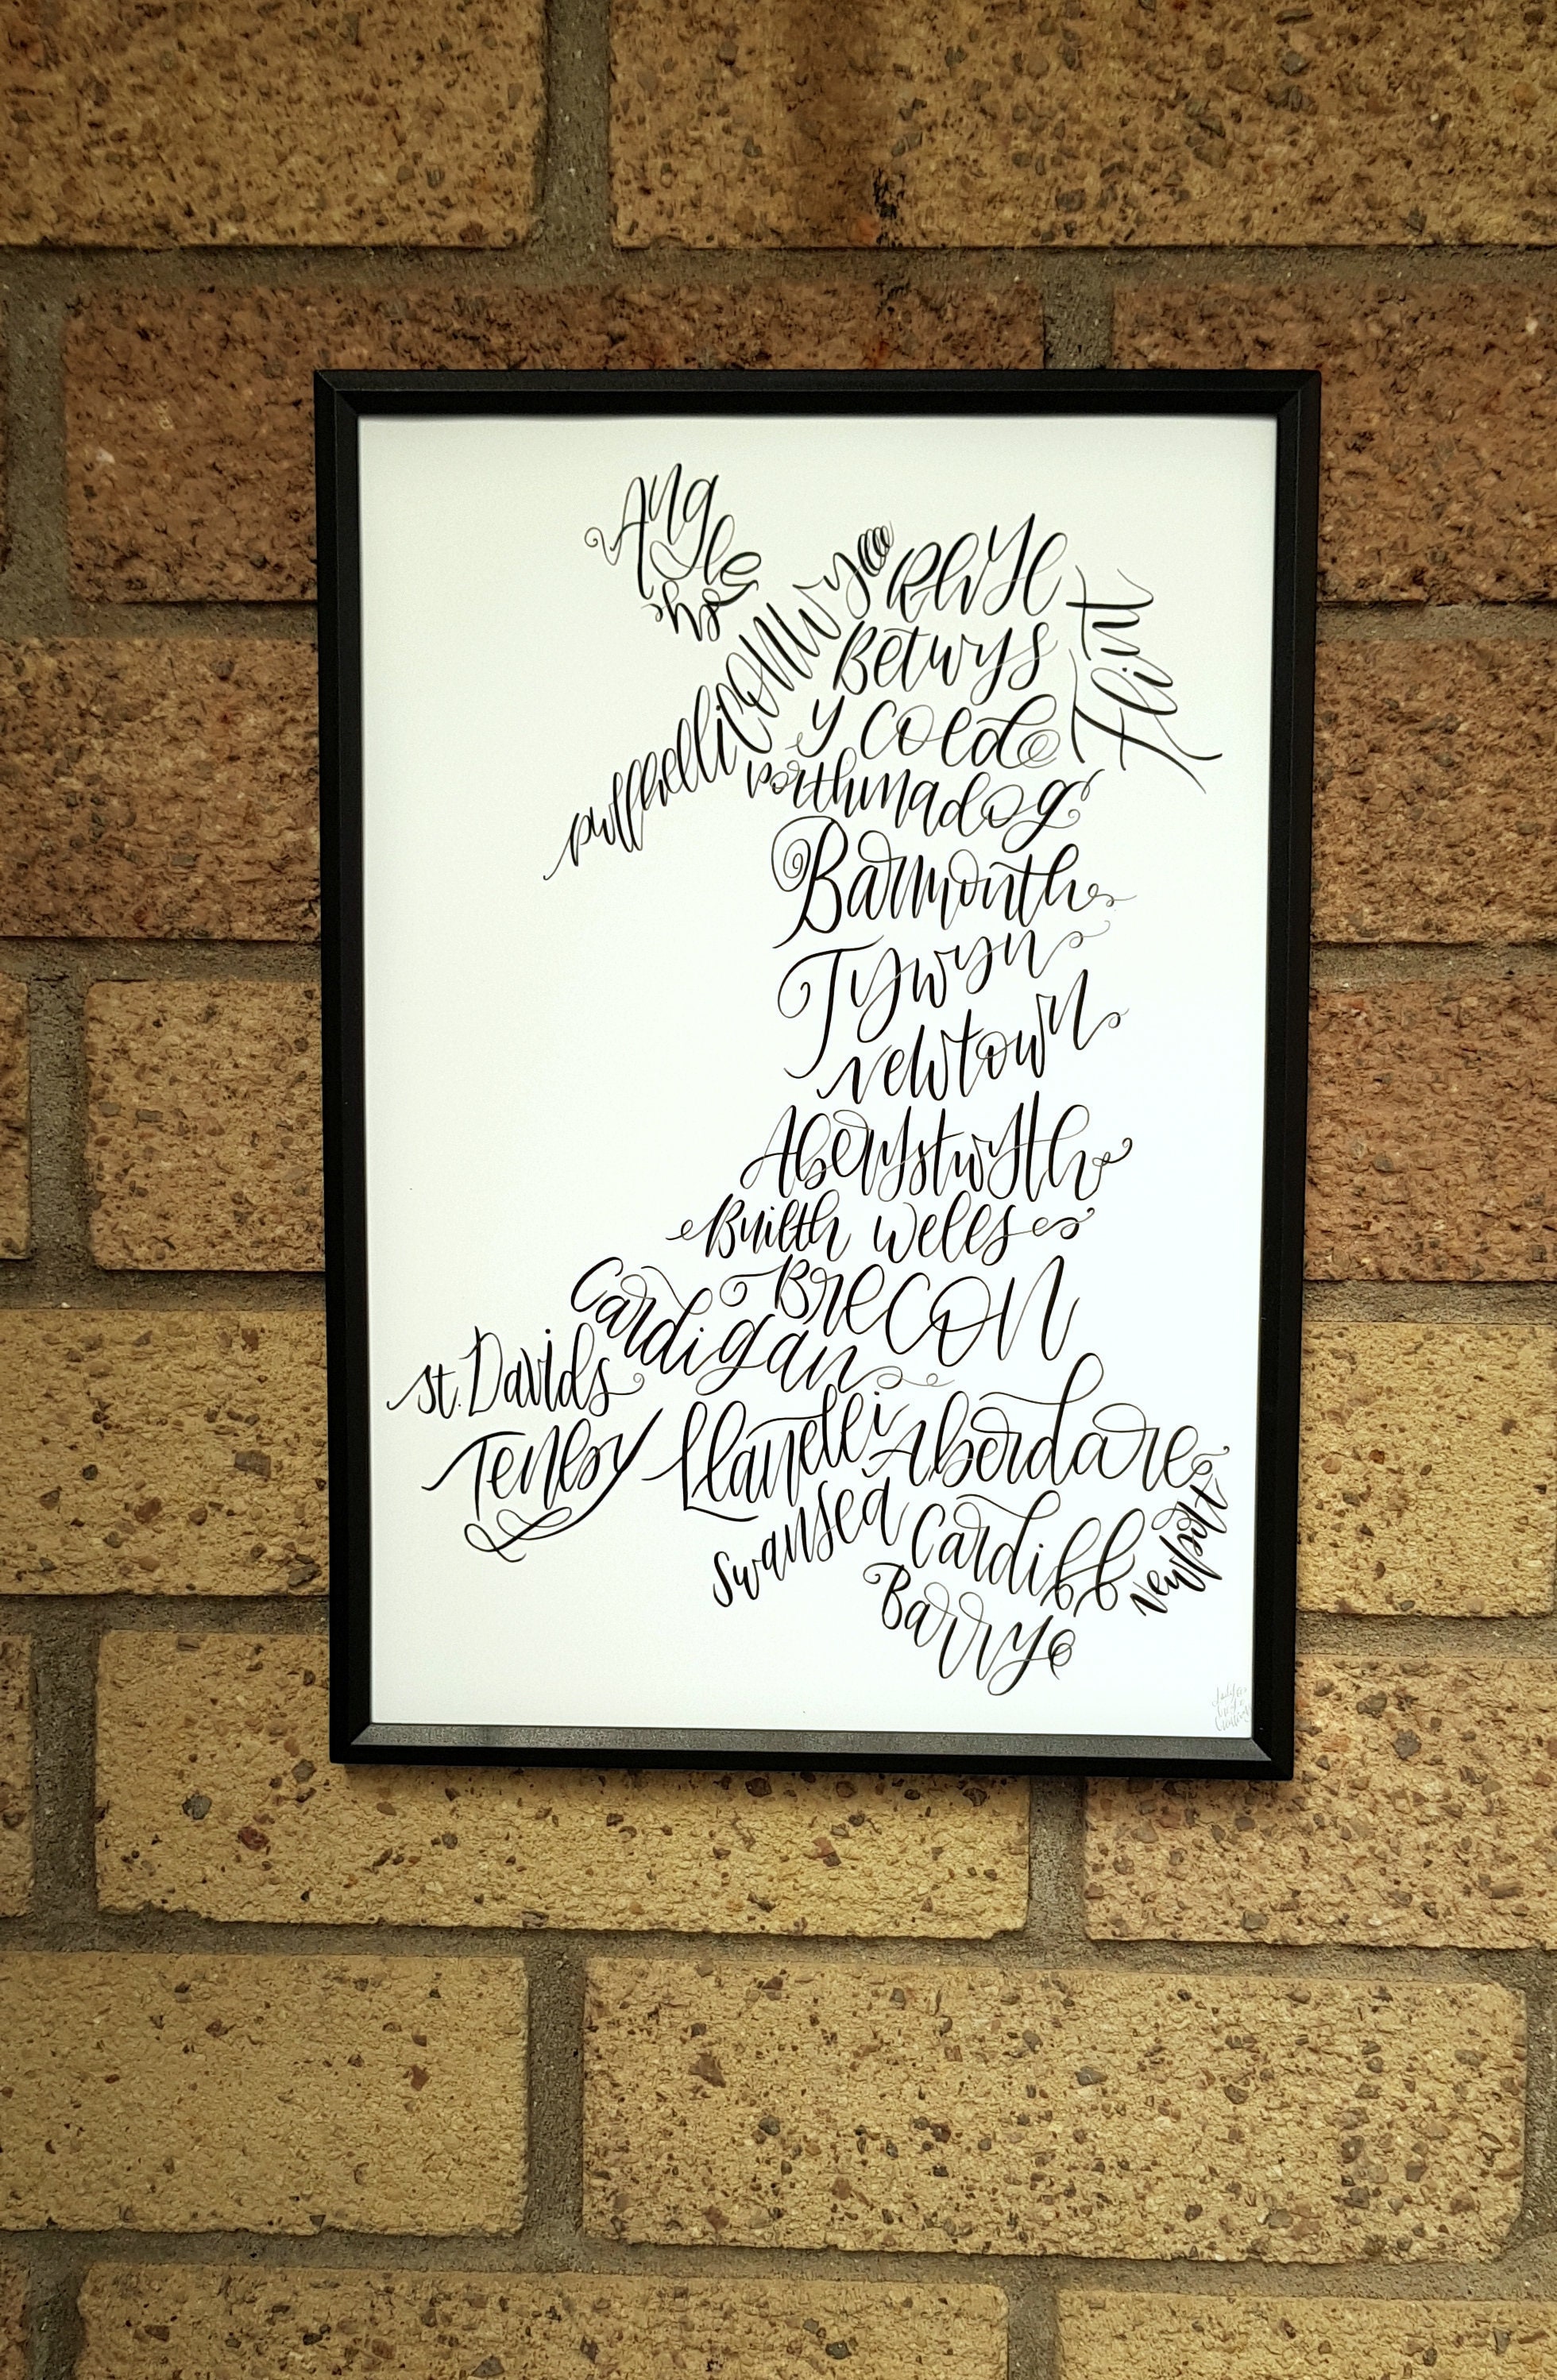 Anglesey
Conwy
Rhyl
Flint
Betwys
y coed
pwllhelli
Porthmadog
Barmouth
Tywyn
newtown
Aberystwyth
Builth wells
Brecon
Cardigan
St. Davids
Tenby
Llanelli
Aberdare
Swansea
Cardiff
Newport
Barry